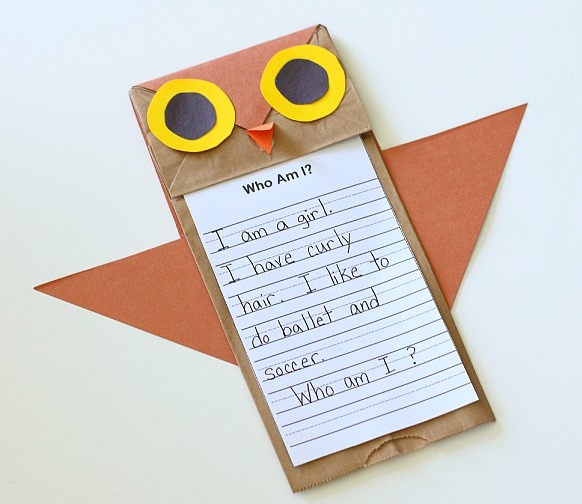 Who Am I?
I am a girl.
I have curly
hair. I like to
do ballet and
soccer.
Who am I ?